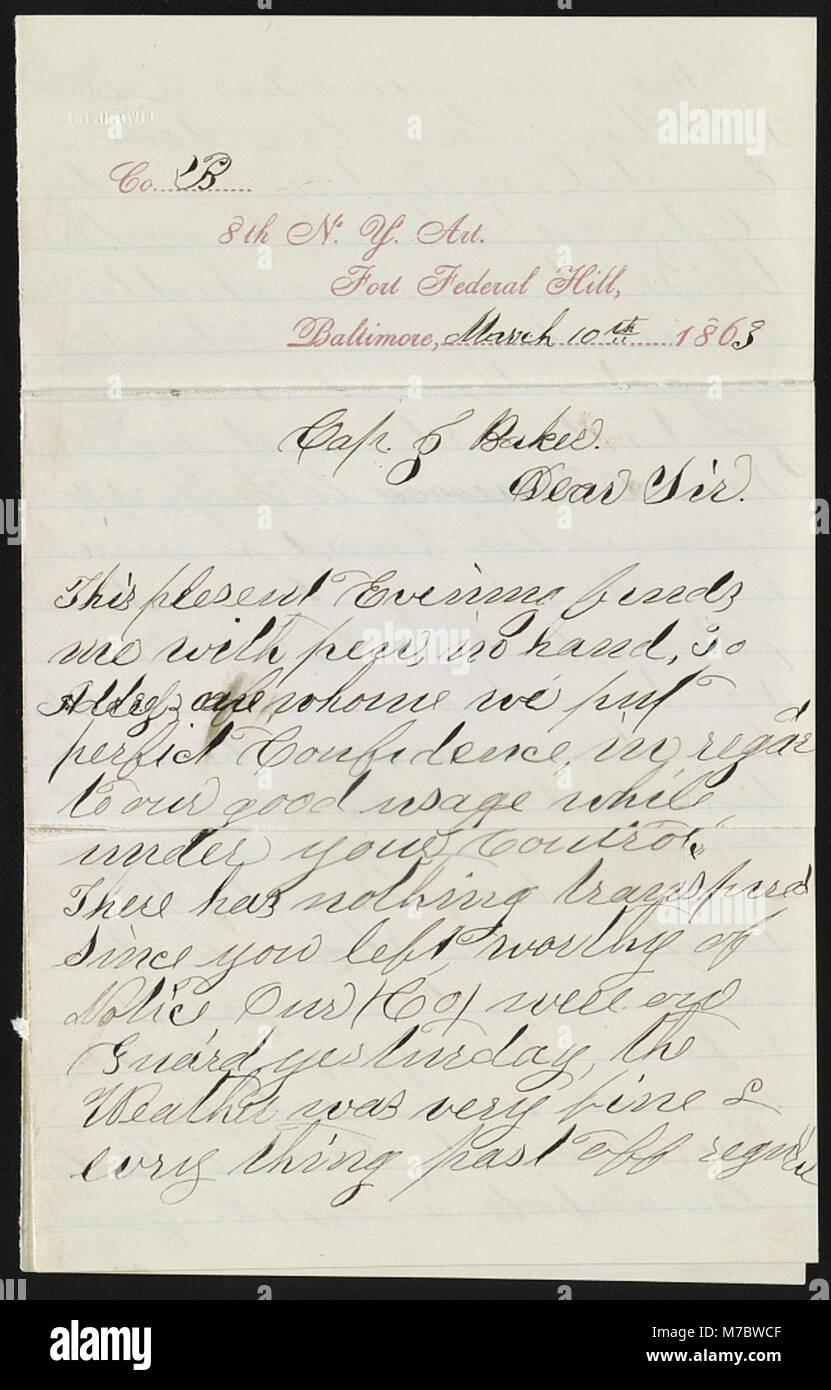 Co. B
8th N. Y. Art.
Fort Federal Hill,
Baltimore, March 10th 1863
Cap. J Baker.
Dear Sir.
This present Evening finds
me with pen, in hand, To
Address one whome we put
perfict Confidence, in regar
to our good usage while
under your Control,
There has nothing transpired
since you left, worthy of
Notice Our (Co) were on
Guard yesturday, the
Weather was very fine &
evry thing past off regular
alamy
alamy
Image ID: M7BWCF
www.alamy.com